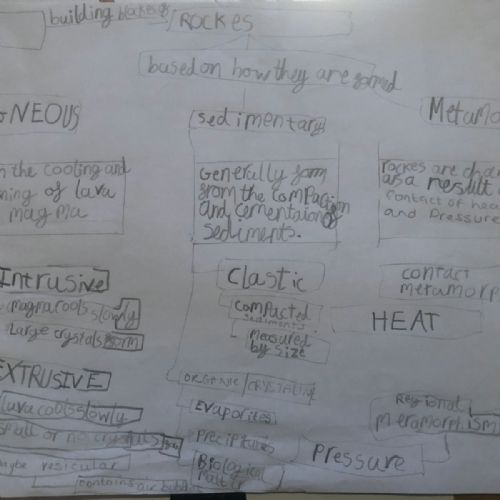 building blockes of
ROCKES
based on how they are formed
NEOUS
sedimentary
Metamo
n the cooling and
ning of lava
magma
Generally form
from the comPaction
and cementaion of
sediments.
rockes are chan
as a result
contact of hea
and Pressure
Intrusive
magma cools slowly
large crystals form
Clastic
comPacted
sediments
measured
by size
contact
metamorp
HEAT
EXTRUSIVE
lava cools slowly
small or no crystals form
maybe vesicular
contains air bubbles
ORGANIC/CRYSTALINE
Evaporites
Precipitates
Biological
matter
Regional
meramorphism
Pressure